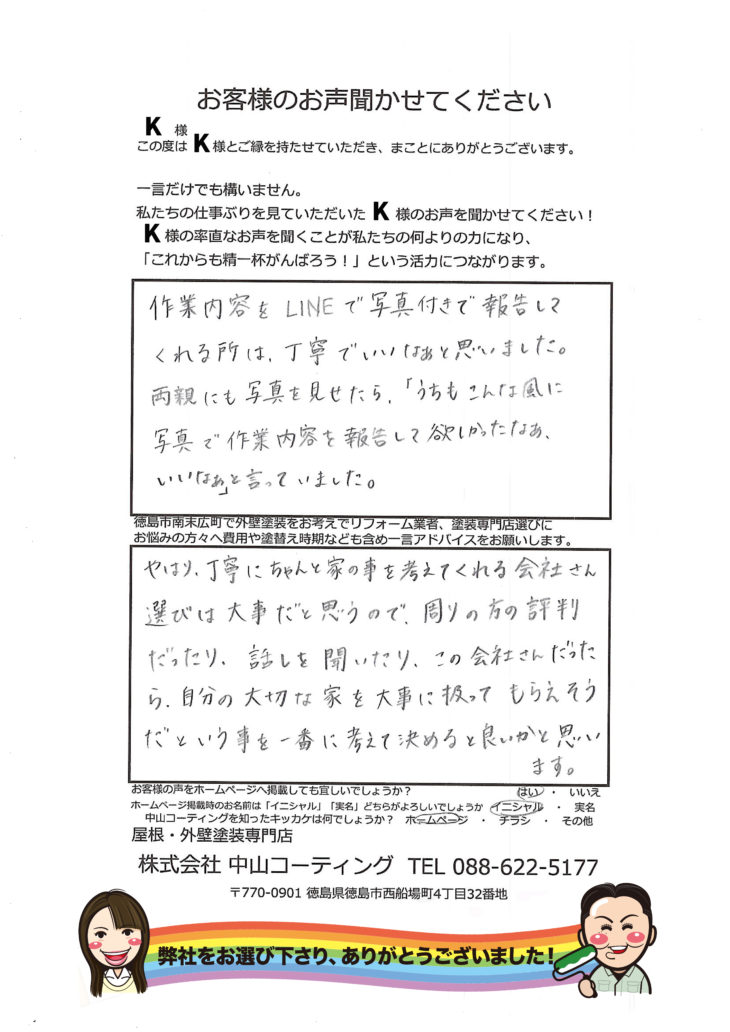 お客様のお声聞かせてください
K 様
この度は K 様とご縁を持たせていただき、まことにありがとうございます。
一言だけでも構いません。
私たちの仕事ぶりを見ていただいた K 様のお声を聞かせてください！
K 様の率直なお声を聞くことが私たちの何よりの力になり、
「これからも精一杯がんばろう！」という活力につながります。
作業内容をLINEで写真付きで報告して
くれる所は、丁寧でいいなぁと思いました。
両親にも写真を見せたら、「うちもこんな風に
写真で作業内容を報告して欲しかったなぁ、
いいなぁ」と言っていました。
徳島市南末広町で外壁塗装をお考えでリフォーム業者、塗装専門店選びに
お悩みの方々へ費用や塗替え時期なども含め一言アドバイスをお願いします。
やはり、丁寧にちゃんと家の事を考えてくれる会社さん
選びは大事だと思うので、周りの方の評判
だったり、話しを聞いたり、この会社さんだった
ら、自分の大切な家を大事に扱ってもらえそう
だという事を一番に考えて決めると良いかと思い
ます。
お客様の声をホームページへ掲載しても宜しいでしょうか？ はい ・ いいえ
ホームページ掲載時のお名前は「イニシャル」「実名」どちらがよろしいでしょうか イニシャル ・ 実名
中山コーティングを知ったキッカケは何でしょうか？ ホームページ ・ チラシ ・ その他
屋根・外壁塗装専門店
株式会社 中山コーティング TEL 088-622-5177
〒770-0901 徳島県徳島市西船場町4丁目32番地
弊社をお選び下さり、ありがとうございました！